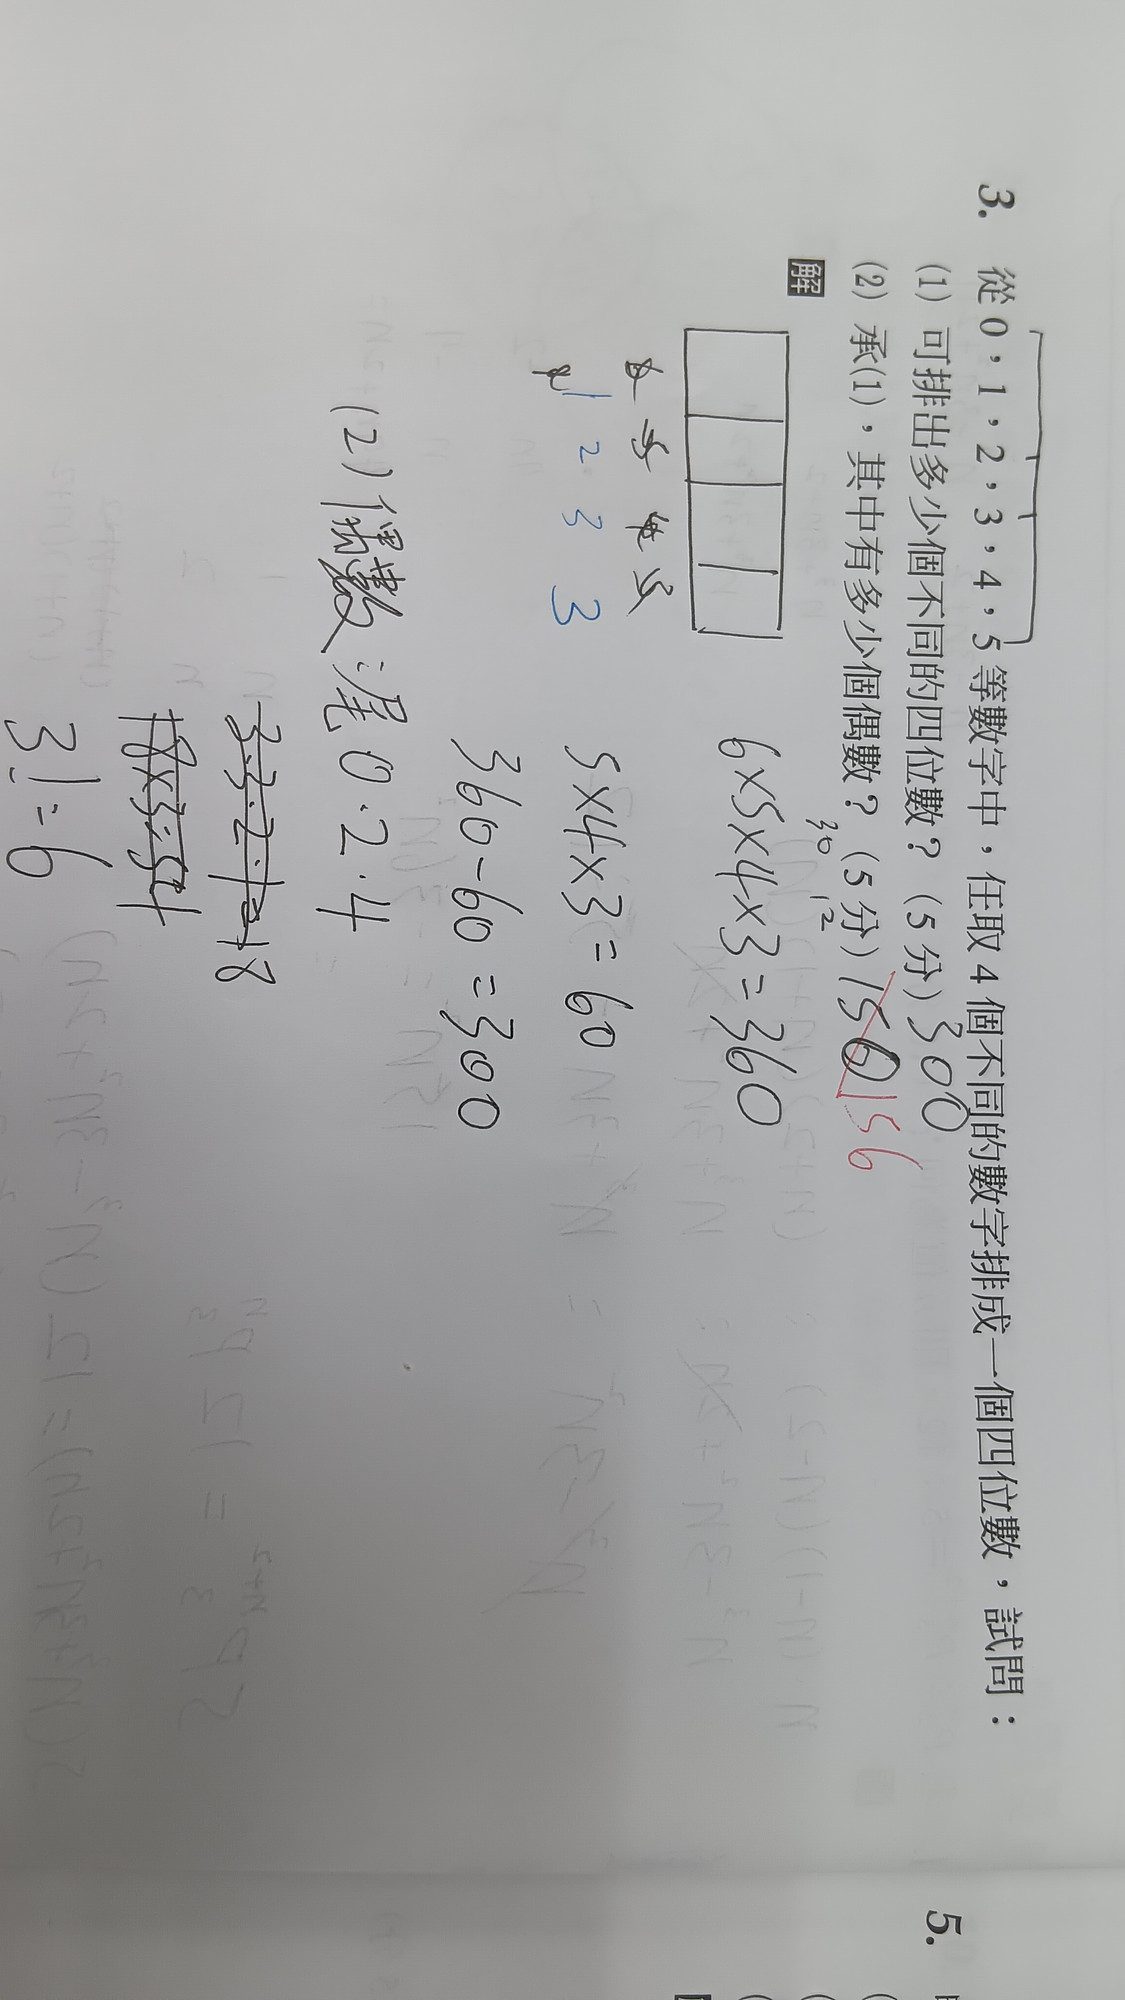 3. 從 0，1，2，3，4，5 等數字中，任取 4 個不同的數字排成一個四位數，試問：
(1) 可排出多少個不同的四位數？(5 分) 300
(2) 承(1)，其中有多少個偶數？(5 分) 150 156
30 12
解
6×5×4×3=360
1 2 3 3
5×4×3=60
360-60=300
(2) 偶數：尾 0.2.4
3.3.2.1=18
18×3=54
3!=6
5.